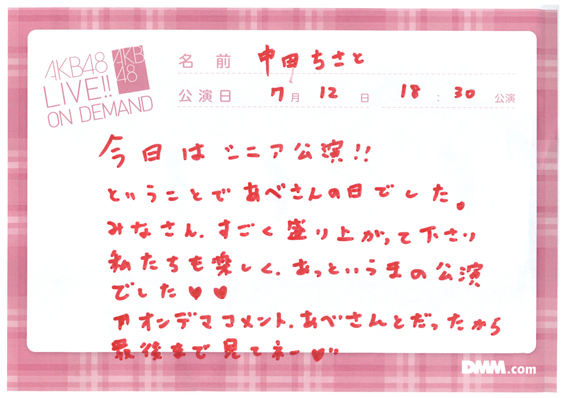 AKB48
LIVE!!
ON DEMAND
AKB
48
名前 中田ちさと
公演日 7月12日 18:30公演
今日はシニア公演!!
ということであべさんの日でした。
みなさん、すごく盛り上がって下さり
私たちも楽しく、あっというまの公演
でした♥♥
オンデマコメント、あべさんとだったから
最後まで見てネー♥
DMM.com